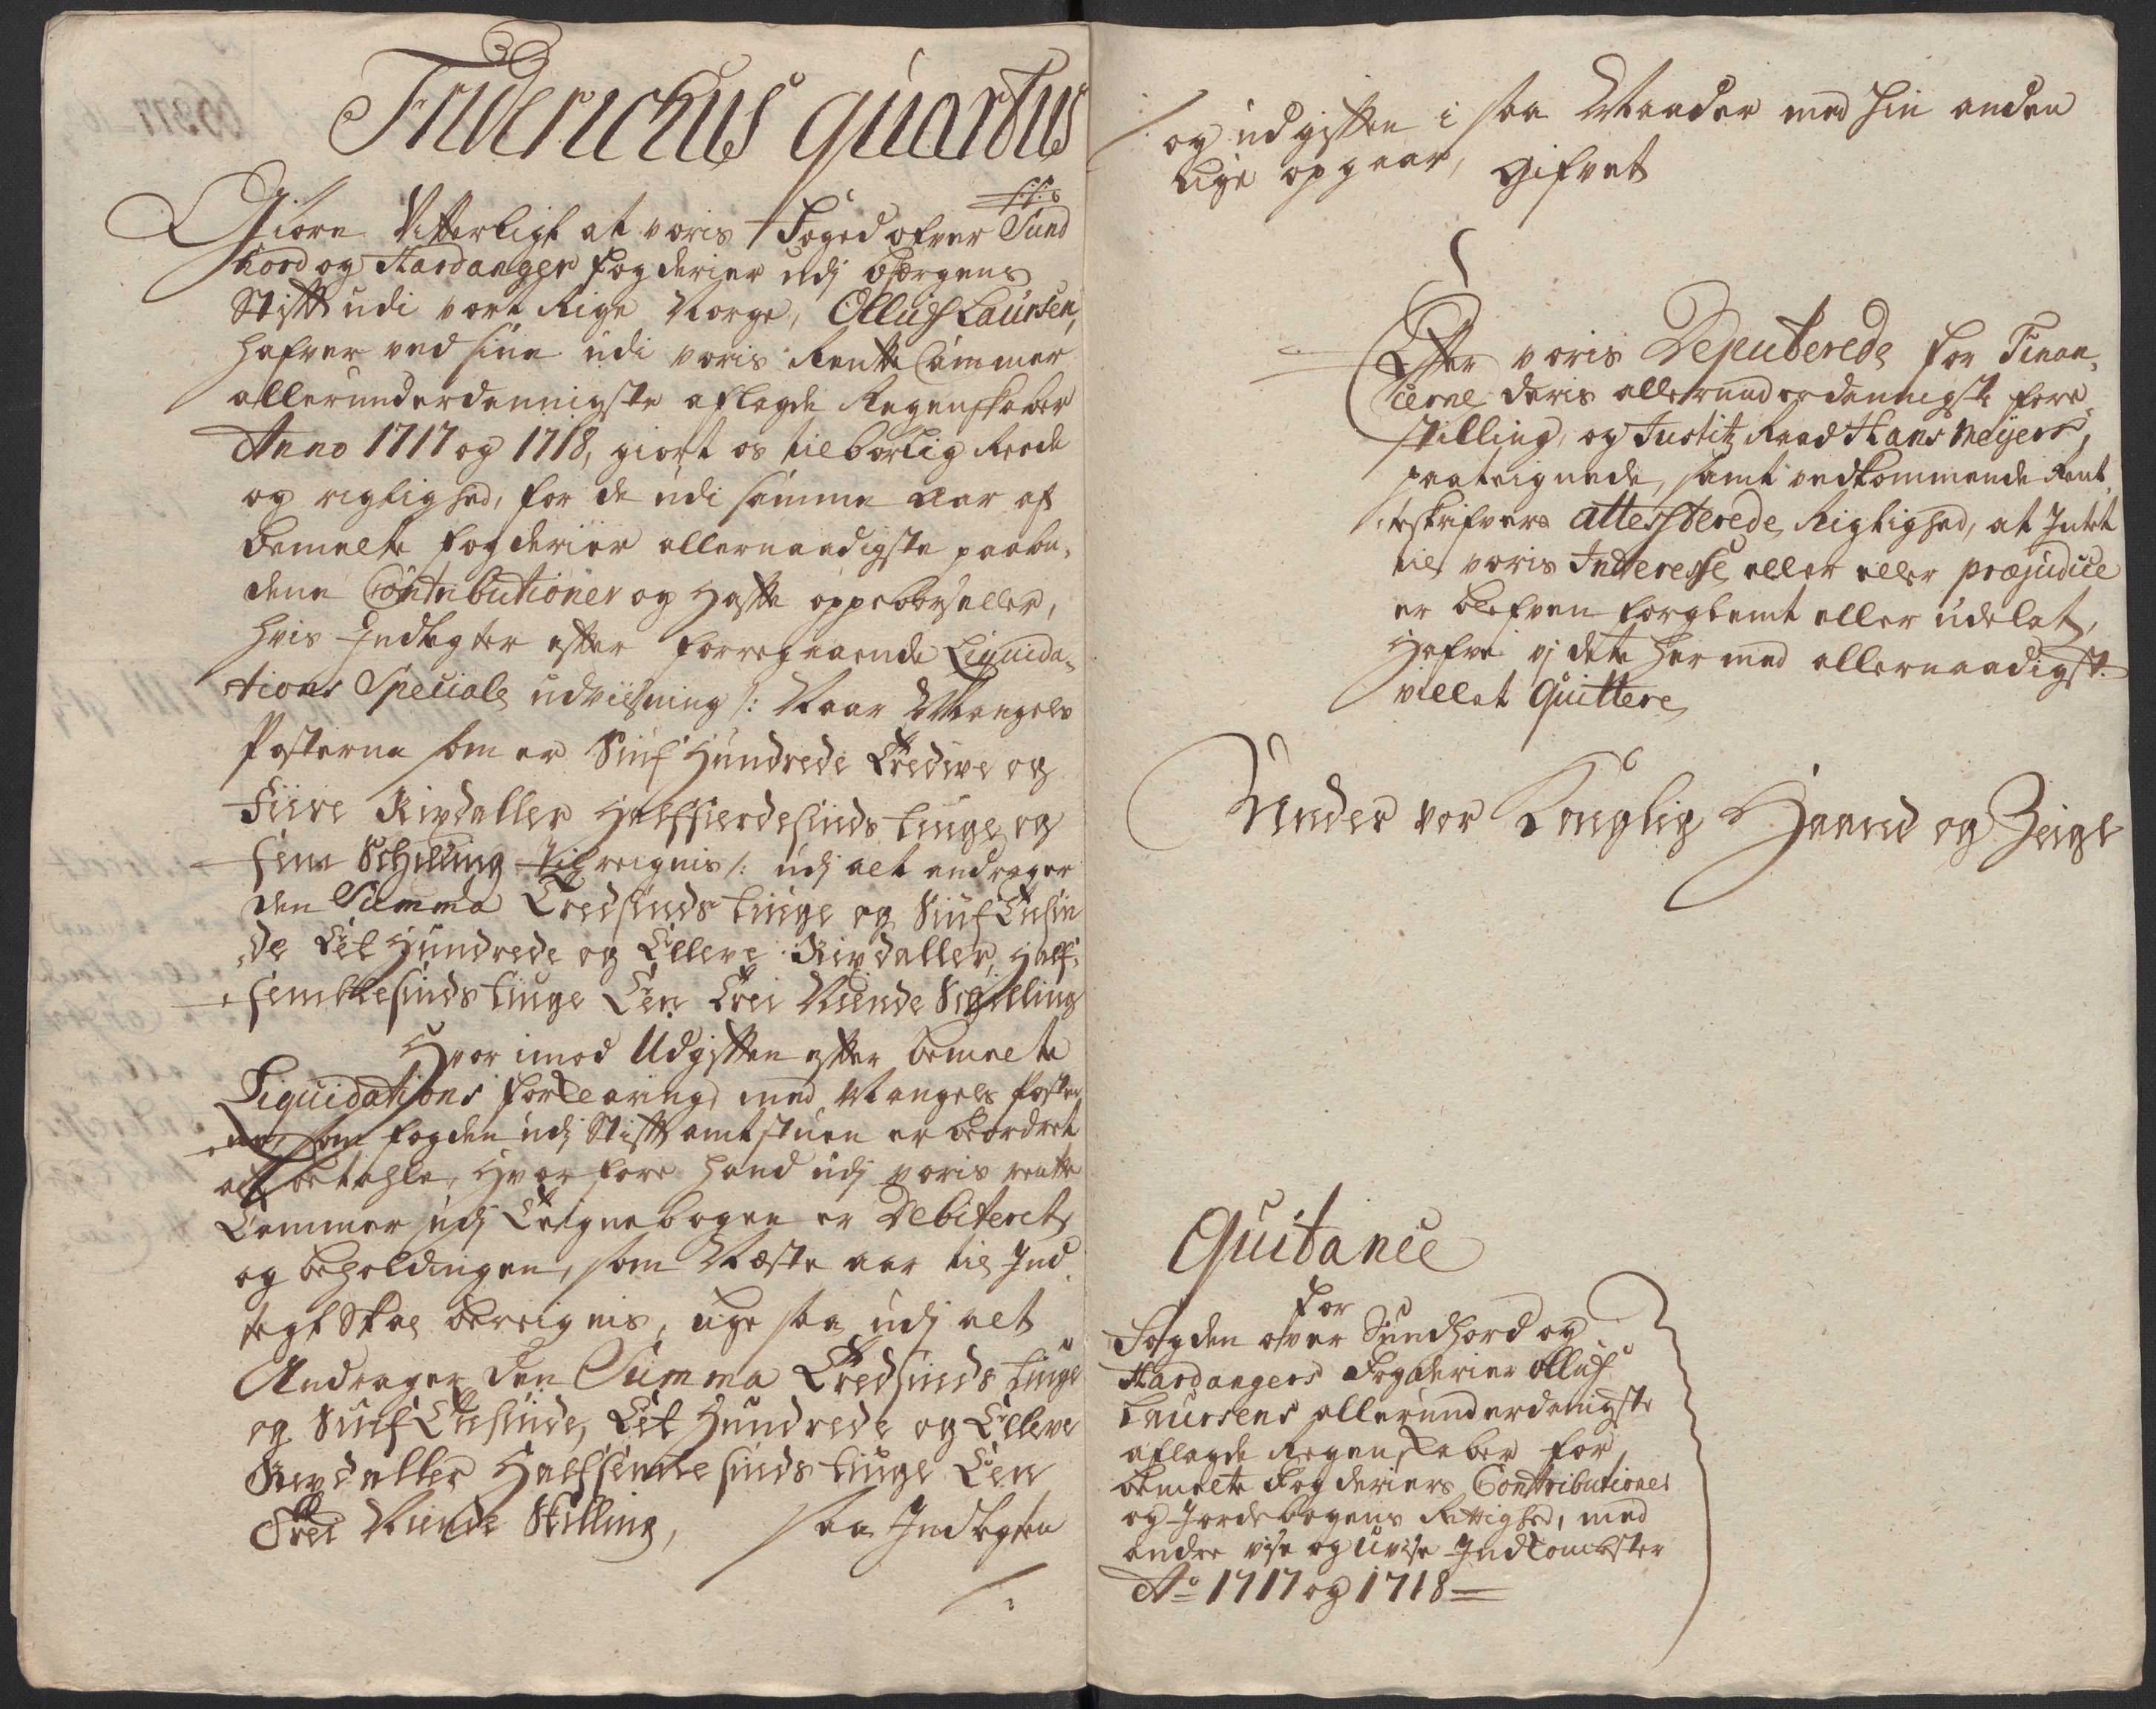 Friderichus quartus
S: S:
Giøre Vitterligt at voris Foged ofver Sund
hord og Hardanger fogderier udj Bergens
Stift udi vort Rige Norge, Olluf Laursen,
hafver ved sine udi voris Rentte Cammer
allerunderdannigste aflagde Regenskaber
Anno 1717 og 1718, giort os tilbørlig Reede
og rigtighed, for de udi samme aar af
bemelte fogderier allernaadigste paabu-
dene Contributioner og hafte oppebørseller,
hvis Indtegter efter forregaaende Liquida-
tions Speciale udviisning /: Naar Mangels
Posterne som er Siuf Hundrede Tredive og
Fiire Rixdaller Halffierdesinds tiuge og
fem Schelling tilreignis :/ udj alt andrager
den Summa Tredsinds tiuge og Siuf Tusin
de Eet Hundrede og Elleve Rixdaller, Half-
femttesinds tiuge Een Trei Niende Schelling
Hvor imod Udgiften efter bemelte
Liquidations forklaring, med Mangels poster
ne, som fogden udj Stiftamtstuen er beordret
at betahle, hvorfore hand udj voris rentte
Cammer udj Teignebogen er Debiterit,
og beholdingen, som Næste aar til Ind
tegt skal bereignis, lige saa udj alt
Andrager den Summa Tredsinds tiuge
og Siuf Tusinde, Eet Hundrede og Elleve
Rixdaller Halffemtesinds tiuge Een
Trei Niende Skilling, saa Indtegten
/:
/: og udgiften i saa Maader med hin anden
lige opgaar, Gifvet
Efter voris Deputerede for Finan-
cerne deris allerunderdannigste fore-
stilling, og Justitz Raad Hans Meÿers,
paateignede, samt vedkommende Rent
teskrifvers attesterede Rigtighed, at Intet
til voris Interesse eller eller præjudice
er blefven forglemt eller udelat,
Hafve vj dette hermed allernaadigst
villet Quittere
Under vor Konglig Haand og Zeigl
Quitance
for
Fogden over Sundhord og
Hardangers Fogderier Olluf
Laursens allerunderdanigste
aflagde Regenskaber for
bemelte Fogderiers Conttributioner
og Jordebogens Rettighed, med
andre vise og uvise Indkombster
Ao 1717 og 1718